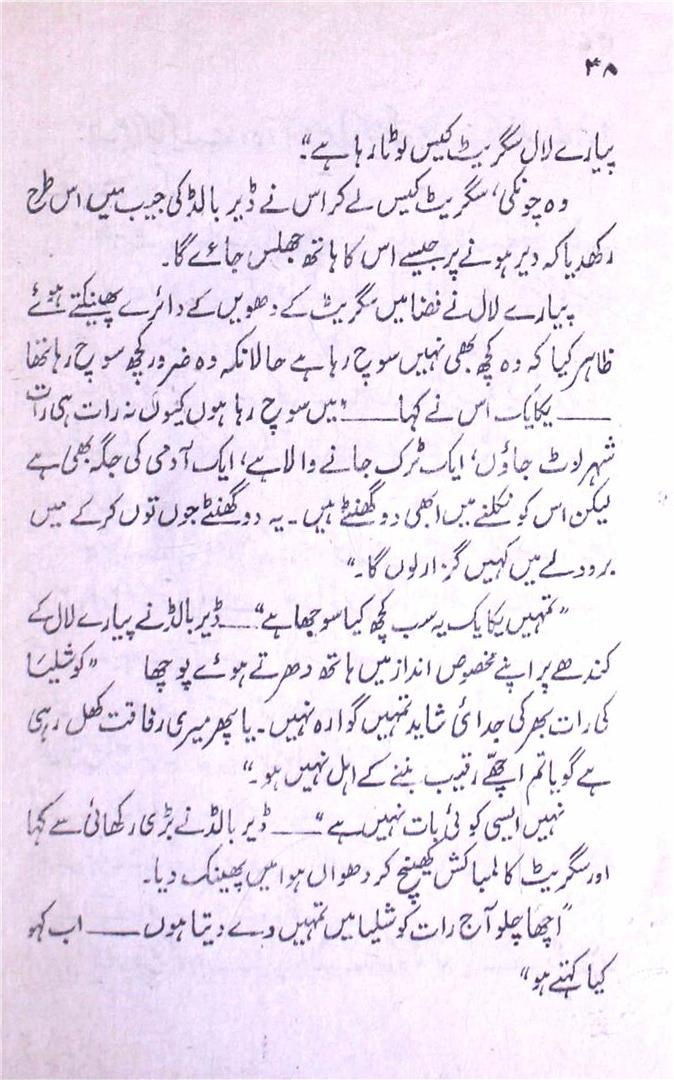 ۴۸
پیارے لال سگریٹ کیس لوٹا رہا ہے“۔
وہ چونکی‘ سگریٹ کیس لے کر اس نے ڈیر بالڈ کی جیب میں اس طرح
رکھدیا کہ دیر ہونے پر جیسے اس کا ہاتھ جھلس جائے گا۔
پیارے لال نے فضا میں سگریٹ کے دھویں کے دائرے پھینکتے ہوئے
ظاہر کیا کہ وہ کچھ بھی نہیں سوچ رہا ہے حالانکہ وہ ضرور کچھ سوچ رہا تھا
—— یکایک اس نے کہا —— ”میں سوچ رہا ہوں کیوں نہ رات ہی رات
شہر لوٹ جاؤں‘ ایک ٹرک جانے والا ہے‘ ایک آدمی کی جگہ بھی ہے
لیکن اس کو نکلنے میں ابھی دو گھنٹے ہیں۔ یہ دو گھنٹے جوں توں کر کے میں
برودلے میں کہیں گزار لوں گا۔“
”تمہیں یکایک یہ سب کچھ کیا سوجھا ہے“ —— ڈیر بالڈ نے پیارے لال کے
کندھے پر اپنے مخصوص انداز میں ہاتھ دھرتے ہوئے پوچھا ”کوشلیا
کی رات بھر کی جدائی شاید تمہیں گوارہ نہیں۔ یا پھر میری رفاقت کھل رہی
ہے گویا تم اچھے رقیب بننے کے اہل نہیں ہو۔“
نہیں ایسی کوئی بات نہیں ہے“ —— ڈیر بالڈ نے بڑی رکھائی سے کہا
اور سگریٹ کا لمبا کش کھینچ کر دھواں ہوا میں پھینک دیا۔
”اچھا چلو آج رات کوشلیا میں تمہیں دے دیتا ہوں —— اب کہو
کیا کہتے ہو“